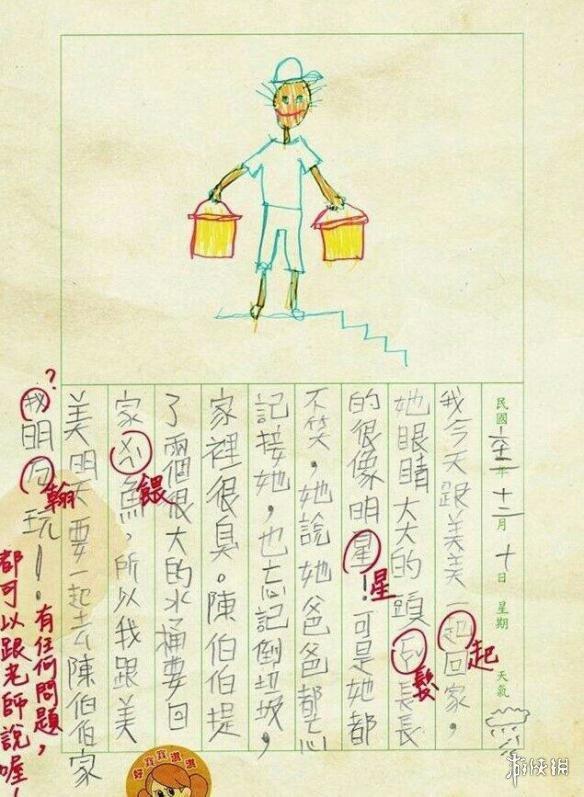 民國年十二月十日 星期 天氣
我今天跟美美一起回家，
起
她眼睛大大的頭長長
髮
的很像明星！可是她都
星
不笑，她說她爸爸都忘
記接她，也忘記倒垃圾，
家裡很臭。陳伯伯提
了兩個很大的水桶要回
家魚，所以我跟美
餵
美明天要一起去陳伯伯家
?
明玩！
翰
有任何問題，
都可以跟老師說喔！
好寶寶淇淇
游侠网